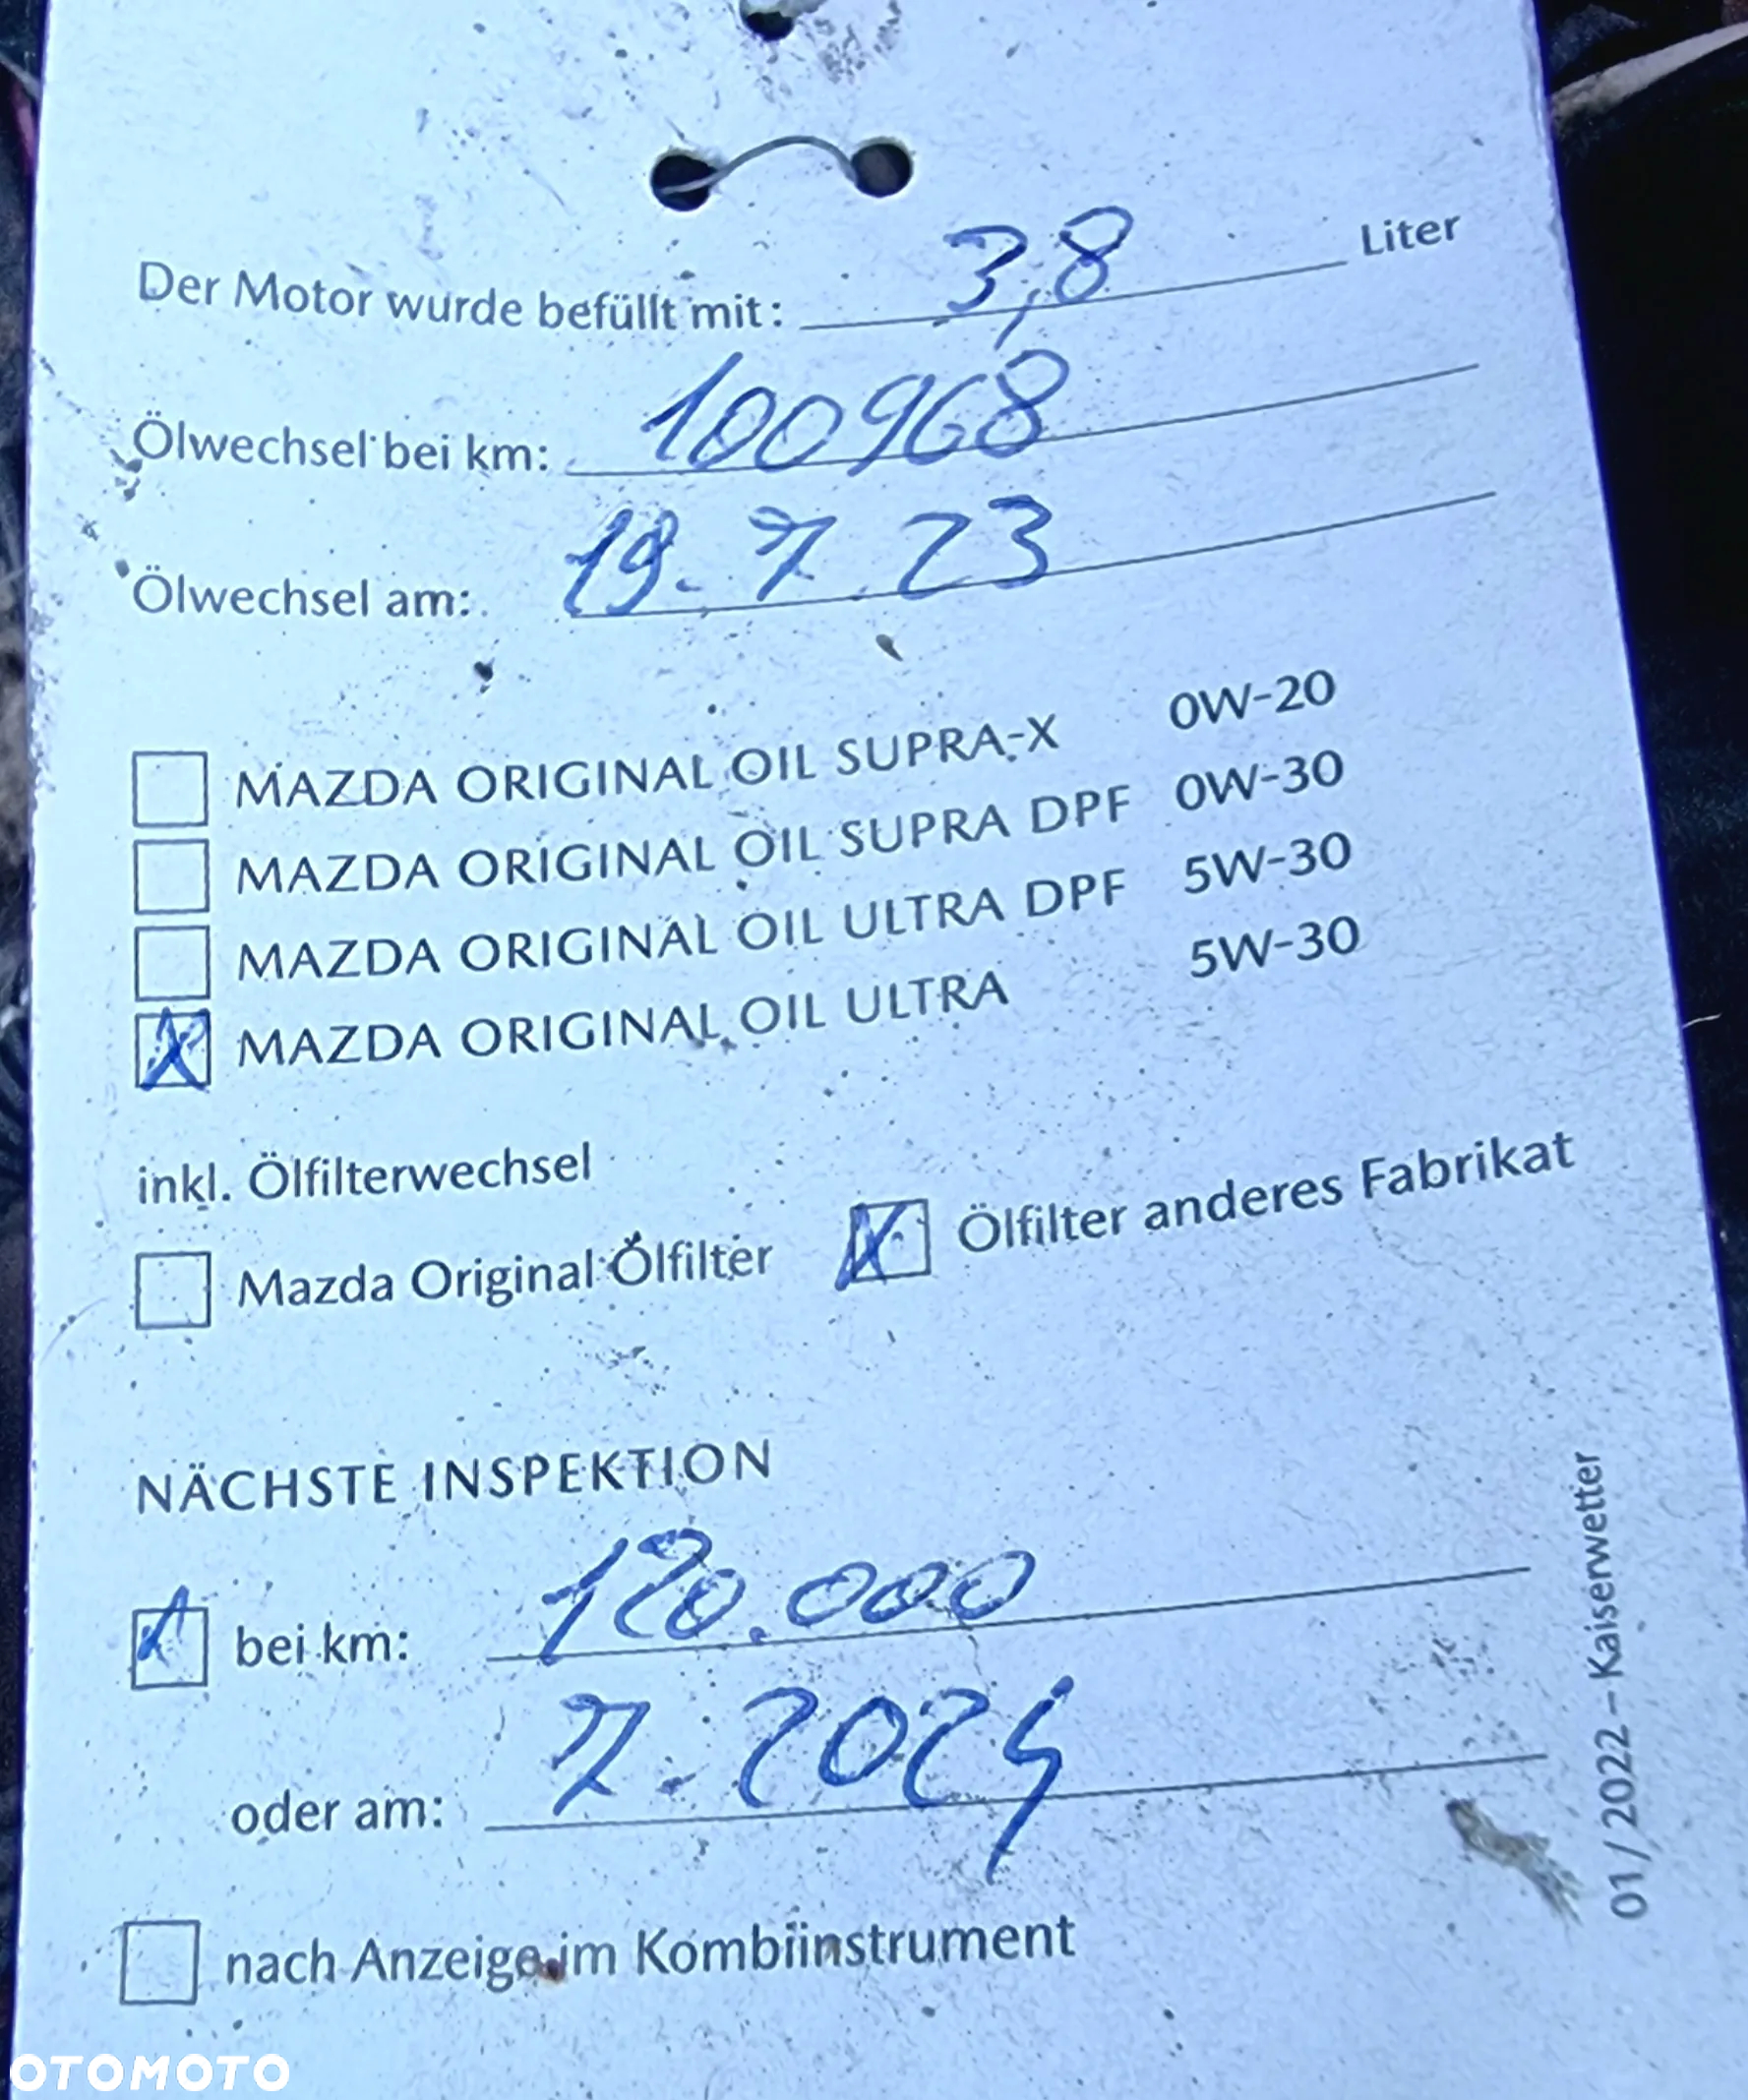 Der Motor wurde befüllt mit: 3,8 Liter
Ölwechsel bei km: 100968
Ölwechsel am: 19.7.23
MAZDA ORIGINAL OIL SUPRA-X 0W-20
MAZDA ORIGINAL OIL SUPRA DPF 0W-30
MAZDA ORIGINAL OIL ULTRA DPF 5W-30
X MAZDA ORIGINAL OIL ULTRA 5W-30
inkl. Ölfilterwechsel
Mazda Original Ölfilter X Ölfilter anderes Fabrikat
NÄCHSTE INSPEKTION
bei km: 120.000
oder am: 7.2024
nach Anzeige im Kombiinstrument
01/2022 – Kaiserwetter
OTOMOTO